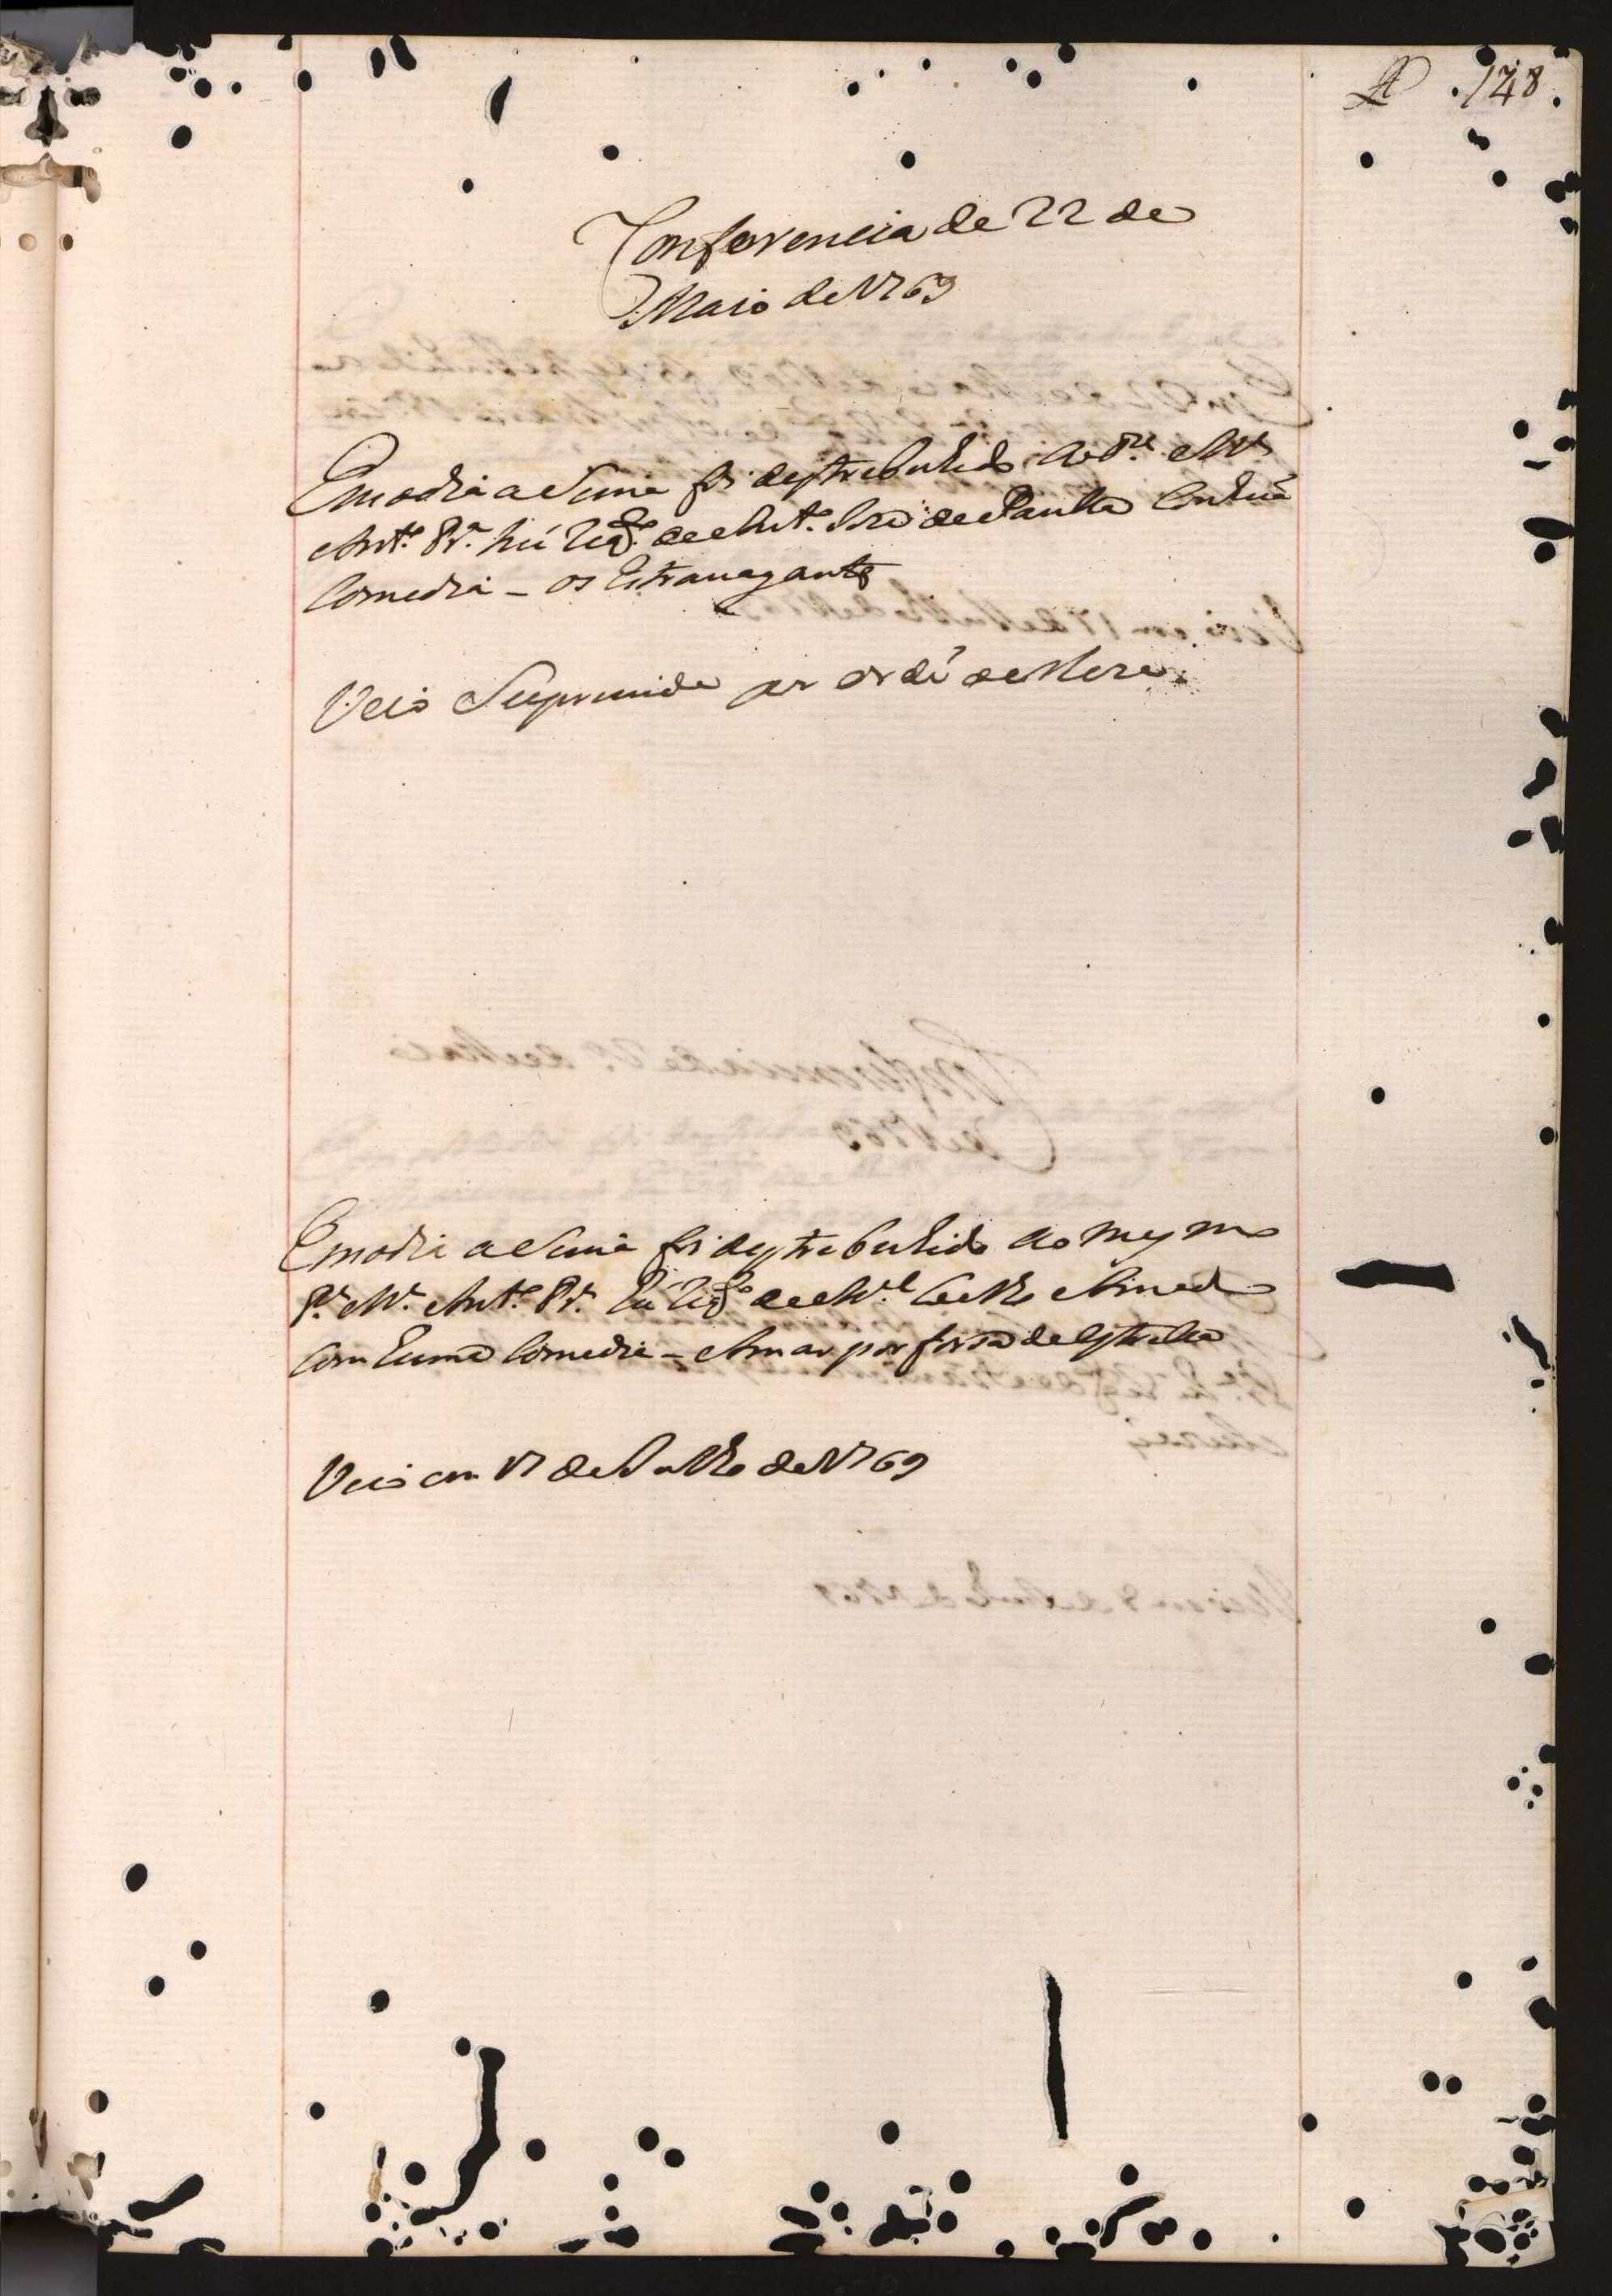 A 148.
Conferencia de 22 de
Maio de 1769
Em o dia acima foi destrebuhido ao P.e M.e
Ant.o Pr.a hũ Req.to de Ant.o Joze de Paulla Com huã
Comedia - os Estravagantes
Veio Suprimida por ordẽ da Meza.
Em o dia acima foi destrebuhido ao mesmo
P.e M.e Ant.o Pr.a hũ Req.to de M.el
Com huma Comedia - Amar por forsa de estrella
Veio em 17 de Julho de 1769